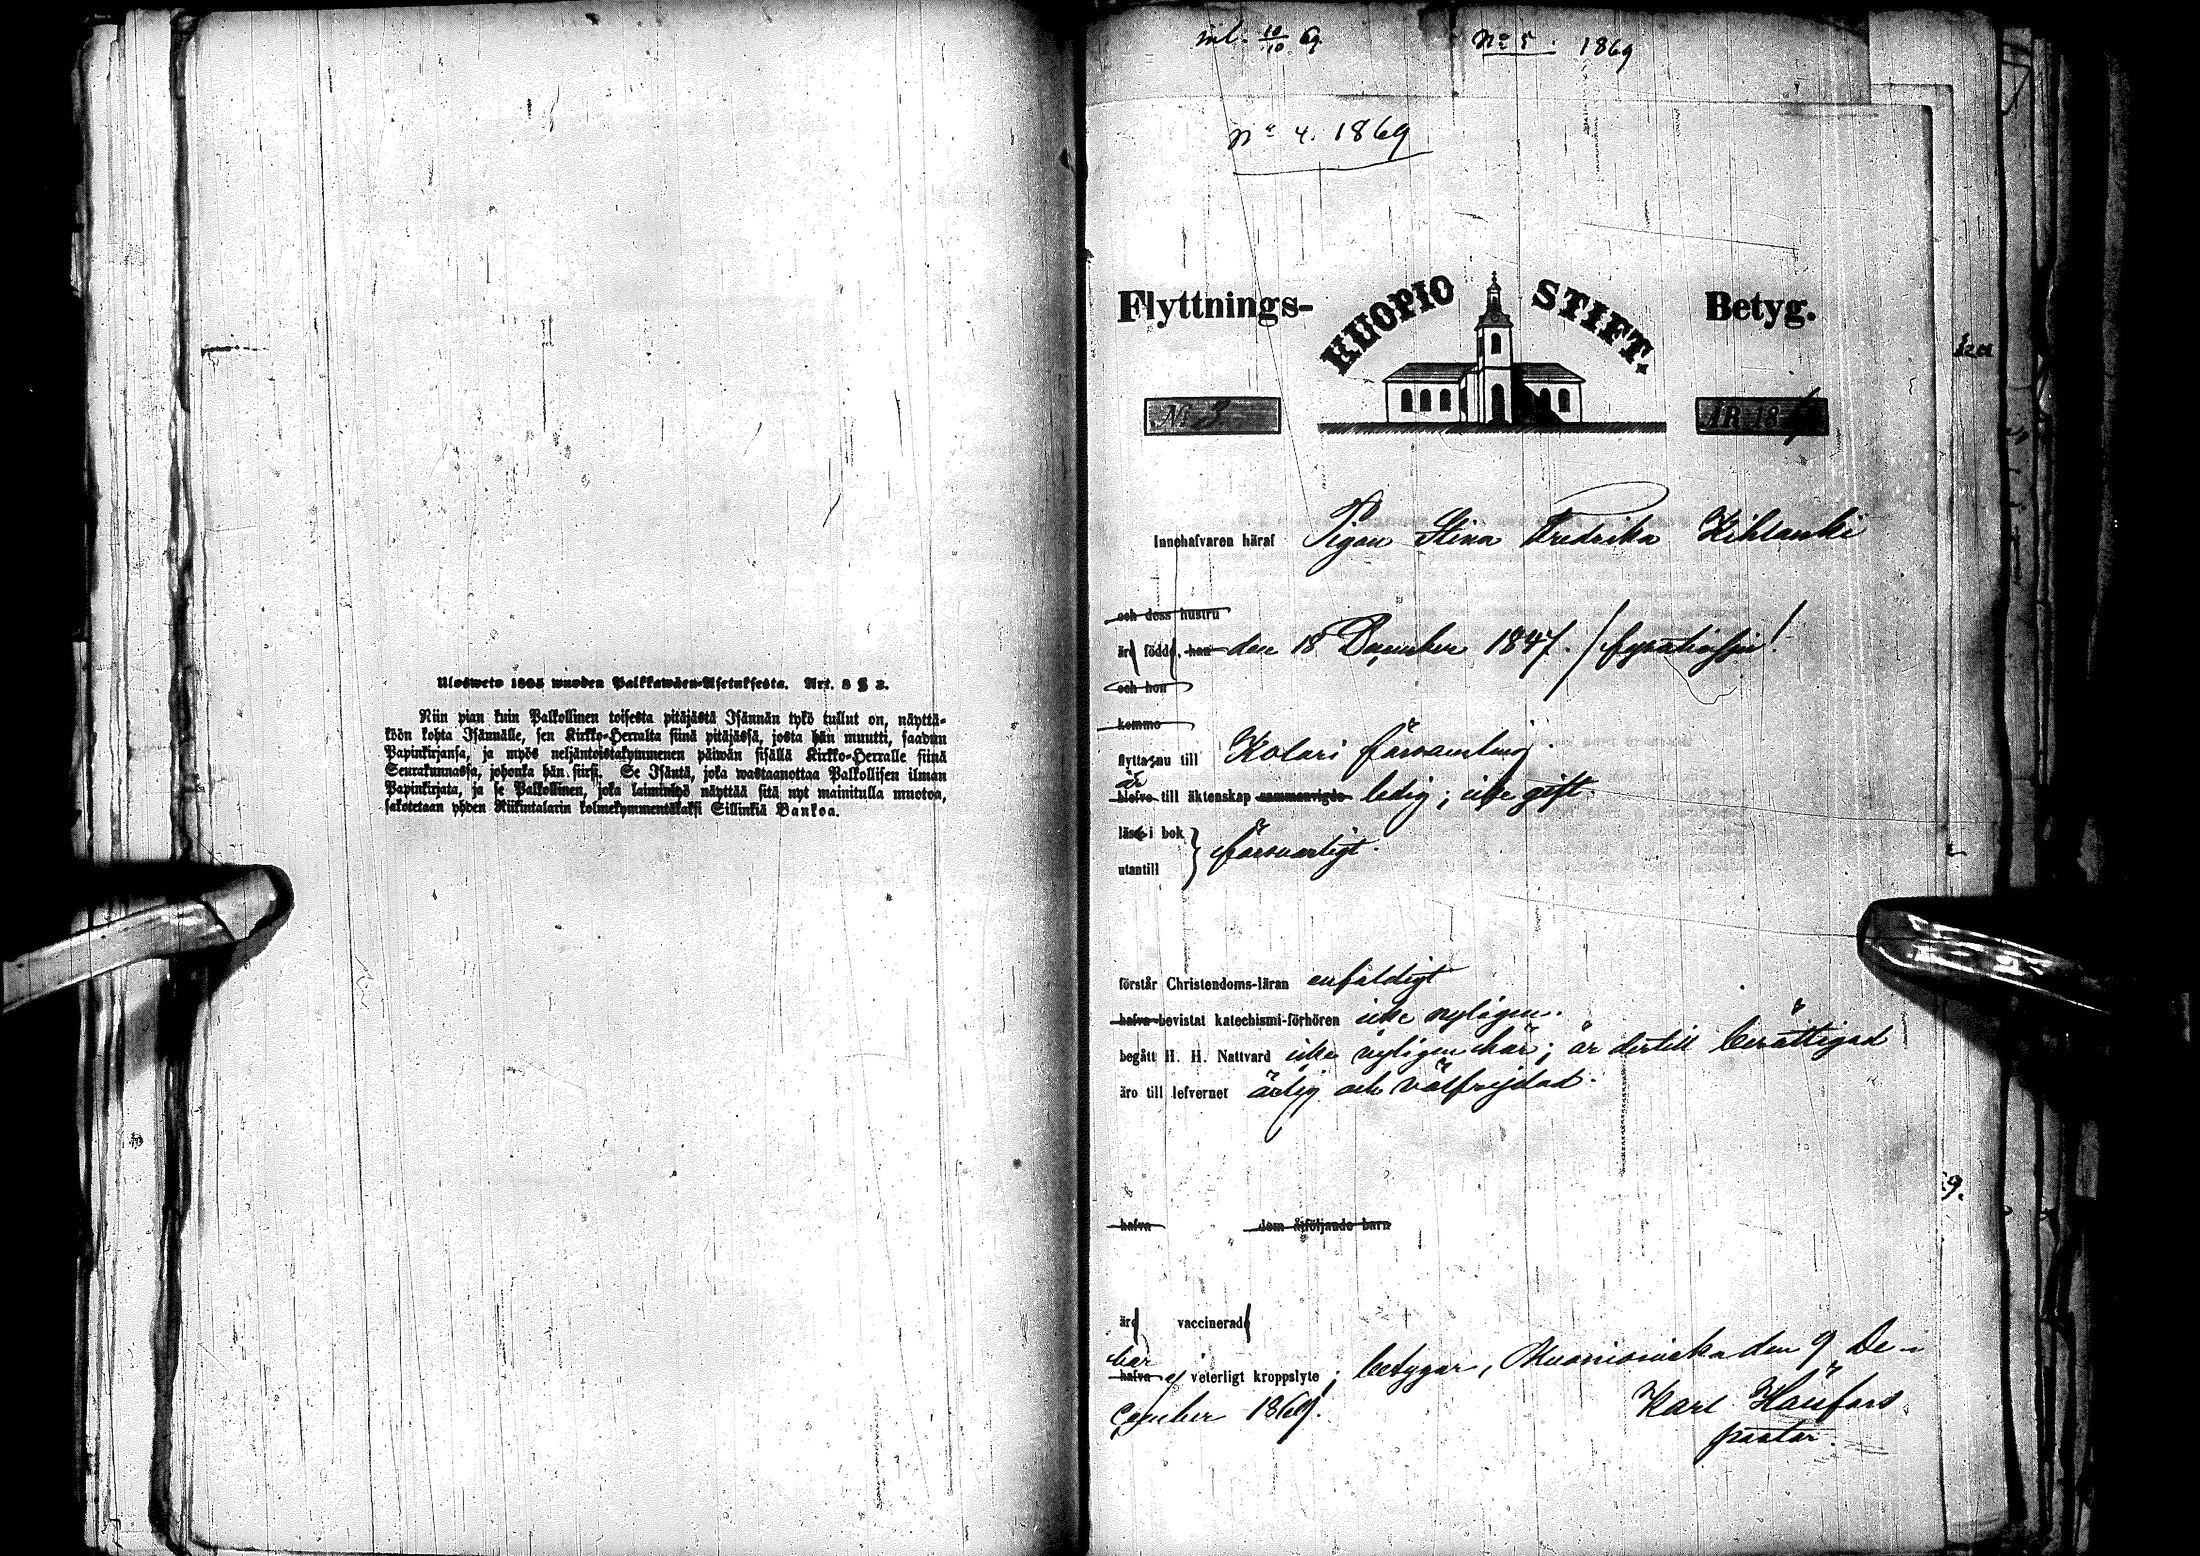 Ulosweto 1805 wuoden Palkkawäen-Asetuksesta. Art. 8 § 3.
Niin pian kuin Palkollinen toisesta pitäjästä Isännän tykö tullut on, näyttä-
köön kohta Isännälle, sen Kirkko-Herralta siinä pitäjässä, josta hän muutti, saadun
Papinkirjansa, ja myös neljäntoistakymmenen päiwän sisällä Kirkko-Herralle siinä
Seurakunnassa, johonka hän siirsi. Se Isäntä, joka wastaanottaa Palkollisen ilman
Papinkirjata, ja se Palkollinen, joka laiminlyö näyttää sitä nyt mainitulla muotoa,
sakotetaan yhden Riikintalarin kolmekymmentäkaksi Sillinkiä Bankoa.
inl. 10/10 69 No 5. 1869
No 4. 1869
Flyttnings- KUOPIO STIFT. Betyg.
No 3. ÅR 18
Innehafvaren häraf Pigan Stina Fredrika Kihlanki
och dess hustru
äro födde, han den 18 December 1847.
och hon
komma
flytta nu till Kolari församling.
är
blefvo till äktenskap sammanvigde ledig; icke gift.
läsa i bok
utantill försvarligt.
förstår Christendoms-läran enfaldigt
hafva bevistat katechismi-förhören icke nyligen.
begått H. H. Nattvard icke nyligen här; är dertill berättigad
äro till lefvernet ärlig och välfrejdad.
hafva dem åtföljande barn
äro vaccinerade
har
hafva ej veterligt kroppslyte; betygar, Muonioniska den 9 De-
cember 1869.
Karl
pastor.